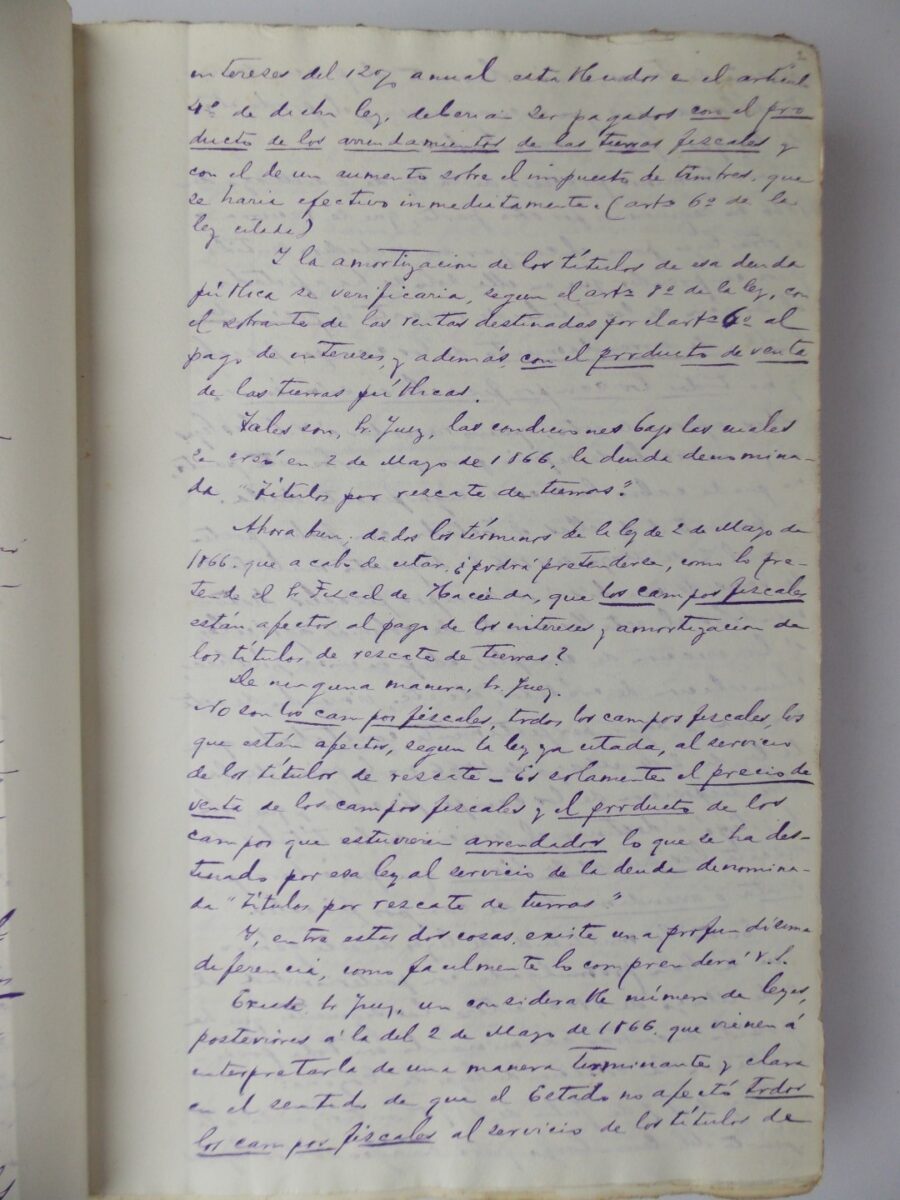 2
intereses del 12% anual establecidos en el artícul
4º de dicha ley, deberian ser pagados con el pro
ducto de los arrendamientos de las tierras fiscales y
con el de un aumento sobre el impuesto de timbres, que
se haria efectivo inmediatamente. (artº 6º de la
ley citada)
Y la amortizacion de los títulos de esa deuda
pública se verificaria, segun el artº 8º de la ley, con
el sobrante de las rentas destinadas por el artº 6º al
pago de intereses, y además, con el producto de venta
de las tierras públicas.
Tales son, Sr. Juez, las condiciones bajo las cuales
se creó en 2 de Mayo de 1866, la deuda denomina-
da "Títulos por rescate de tierras".
Ahora bien; dados los términos de la ley de 2 de Mayo de
1866. que acabo de citar, ¿podrá pretenderse, como lo pre-
tende el Sr. Fiscal de Hacienda, que los campos fiscales
están afectos al pago de los intereses y amortizacion de
los títulos de rescate de tierras?
De ninguna manera, Sr. Juez.
No son los campos fiscales, todos los campos fiscales, los
que están afectos, segun la ley ya citada, al servicio
de los títulos de rescate - Es solamente el precio de
venta de los campos fiscales y el producto de los
campos que estuvieren arrendados lo que se ha des-
tinado por esa ley al servicio de la deuda denomina-
da "títulos por rescate de tierras."
Y, entre estas dos cosas, existe una profundísima
diferencia, como facilmente lo comprenderá V.S.
Existe Sr. Juez, un considerable número de leyes,
posteriores á la del 2 de Mayo de 1866. que vienen á
interpretarla de una manera terminante y clara
en el sentido de que el Estado no afectó todos
los campos fiscales al servicio de los títulos de